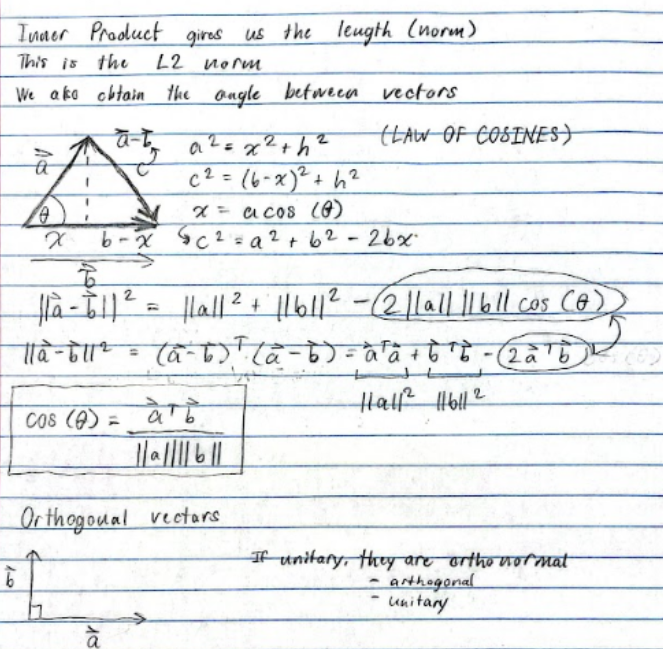 Inner Product gives us the length (norm)
This is the L2 norm
We also obtain the angle between vectors
a⃗ a⃗-b⃗ c a² = x² + h² (LAW OF COSINES)
c² = (b-x)² + h²
θ x = a cos (θ)
x b - x c² = a² + b² - 2bx
b⃗
||a⃗-b⃗||² = ||a||² + ||b||² - 2||a|| ||b|| cos (θ)
||a⃗-b⃗||² = (a⃗-b⃗)ᵀ (a⃗-b⃗) = a⃗ᵀa⃗ + b⃗ᵀb⃗ - 2a⃗ᵀb⃗
||a||² ||b||²
cos (θ) = a⃗ᵀb⃗
||a|| ||b||
Orthogonal vectors
If unitary, they are orthonormal
- orthogonal
- unitary
b⃗
a⃗